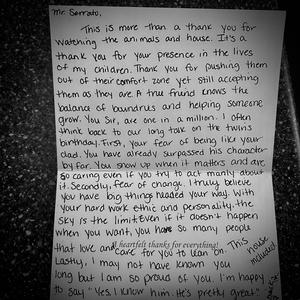 Mr. Serrato,
This is more than a thank you for
watching the animals and house. It's a
thank you for your presence in the lives
of my children. Thank you for pushing them
out of their comfort zone yet still accepting
them as they are. A true friend knows the
balance of boundrus and helping someone
grow. You Sir, are one in a million. I often
think back to our long talk on the twins
birthday. First, your fear of being like your
dad. You have already surpassed his character
by far. You show up when it matters and are
so caring even if you try to act manly about
it. Secondly, fear of change. I truly believe
you have big things headed your way. With
your hard work ethic and personality. the
sky is the limit. Even if it doesn't happen
when you want, you have so many people
that love and care for you to lean on. This house included.
heartfelt thanks for everything!
Lastly, I may not have known you
long but I am so proud of you. I'm happy
to say "Yes, I know him. He's pretty great."